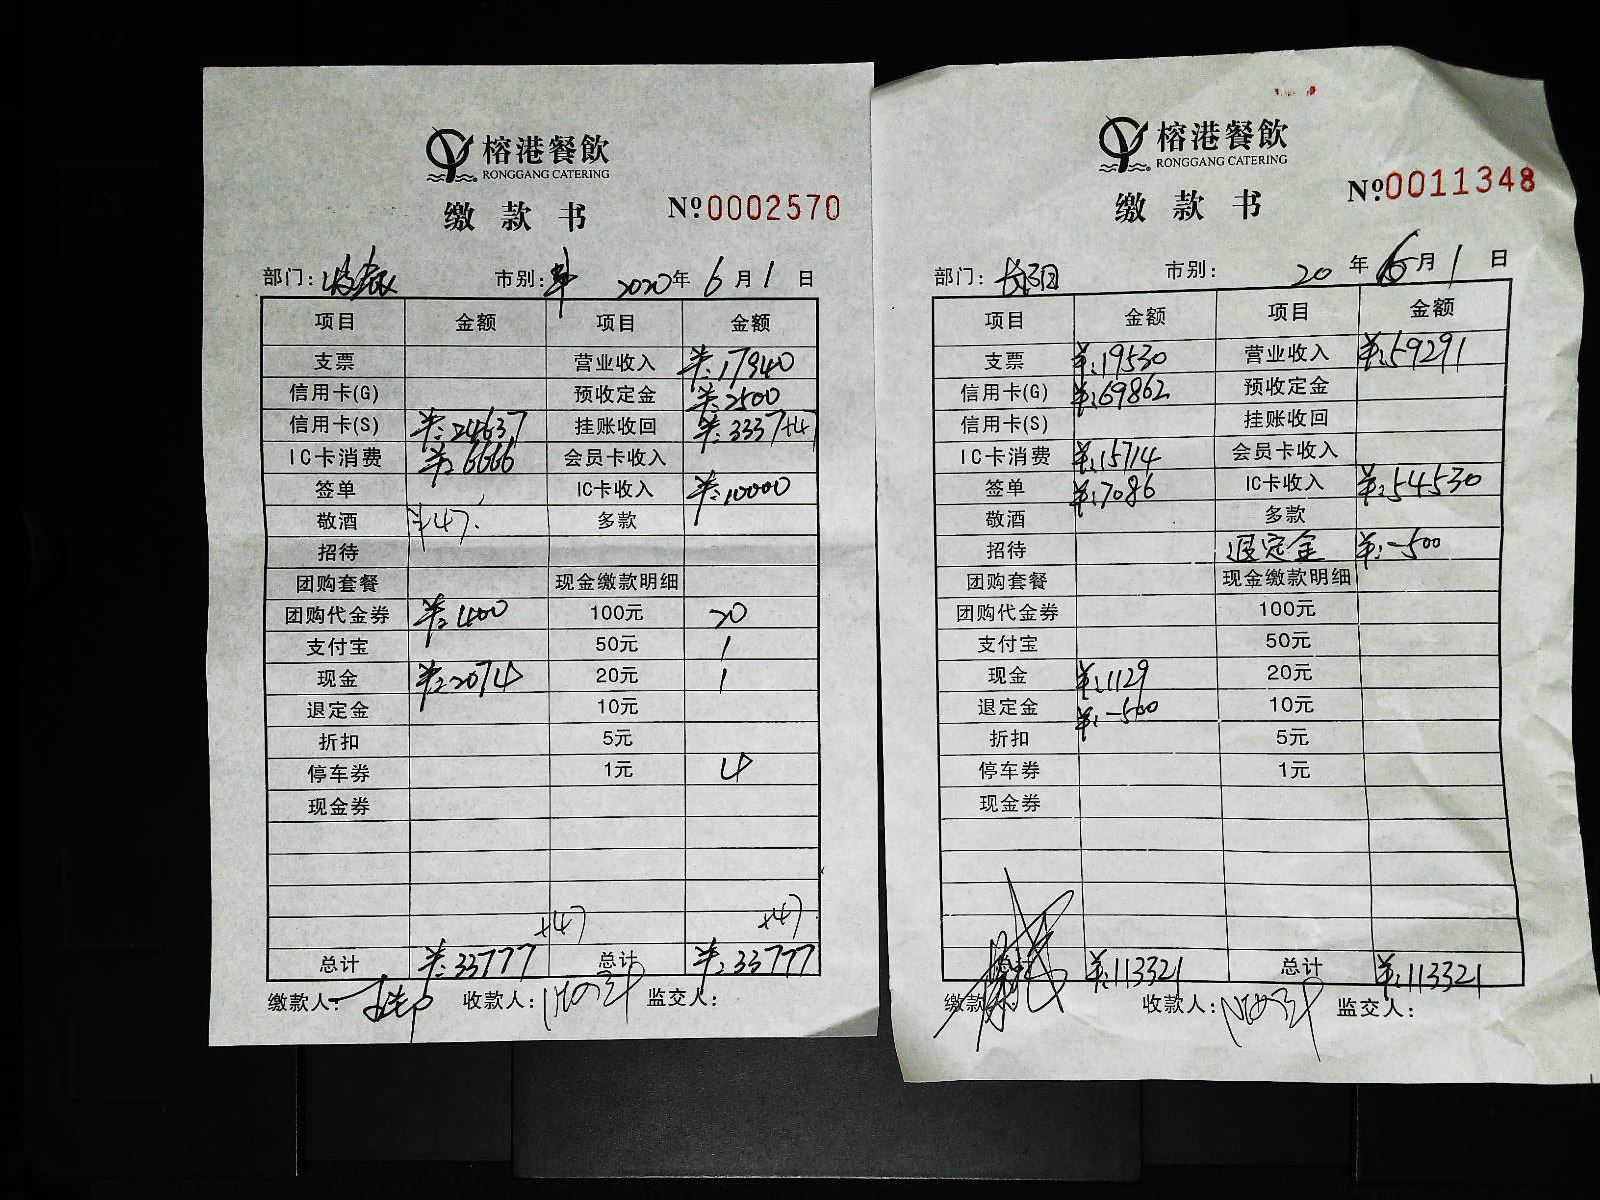 榕港餐飲
RONGGANG CATERING
缴款书 №0002570
部门: 市别: 2020年6月1日
项目 金额 项目 金额
支票 营业收入 ¥:17940
信用卡(G) 预收定金 ¥:2500
信用卡(S) ¥:24637 挂账收回 ¥:3337+47
IC卡消费 ¥:6666 会员卡收入
签单 IC卡收入 ¥:10000
敬酒 ¥47. 多款
招待
团购套餐 现金缴款明细
团购代金券 ¥:400 100元 20
支付宝 50元 1
现金 ¥:2074 20元 1
退定金 10元
折扣 5元
停车券 1元 4
现金券
+47 +47
总计 ¥:33777 总计 ¥:33777
缴款人: 收款人: 监交人:
榕港餐飲
RONGGANG CATERING
缴款书 №0011348
部门: 市别: 20年6月1日
项目 金额 项目 金额
支票 ¥:19530 营业收入 ¥:59291
信用卡(G) ¥:69862 预收定金
信用卡(S) 挂账收回
IC卡消费 ¥:15714 会员卡收入
签单 ¥:7086 IC卡收入 ¥:54530
敬酒 多款
招待 退定金 ¥:-500
团购套餐 现金缴款明细
团购代金券 100元
支付宝 50元
现金 ¥:1129 20元
退定金 ¥:-500 10元
折扣 5元
停车券 1元
现金券
总计 ¥:113321 总计 ¥:113321
缴款人: 收款人: 监交人: